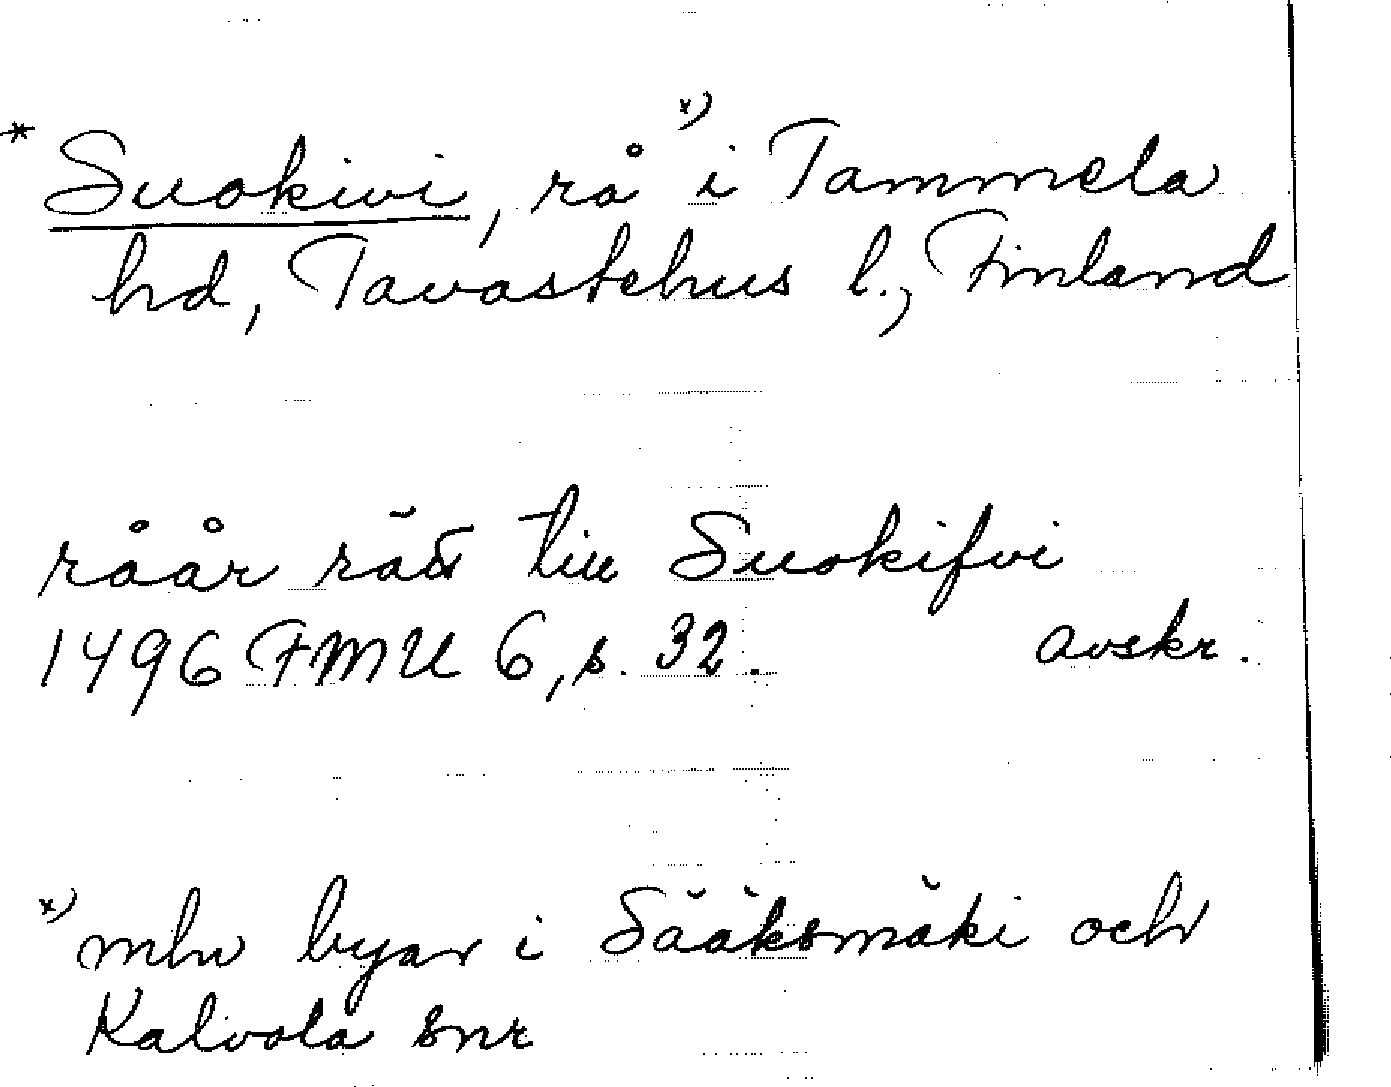 * Suokivi, rå x) i Tammela
hd, Tavastehus l., Finland
råår rätt till Suokifvi
1496 FMU 6, s. 32. avskr.
x) mlu byar i Sääksmäki och
Kalvola snr